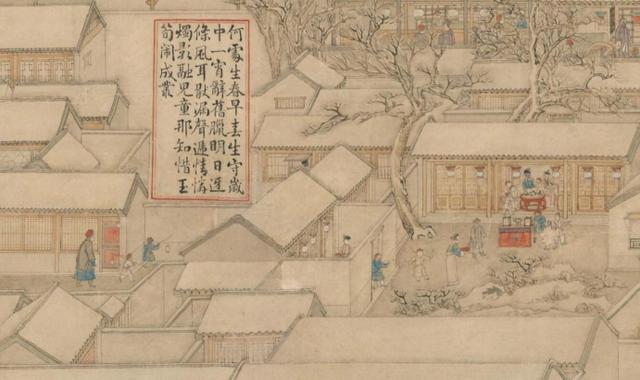 何處生春早春生守歲
中一宵辭舊臘明日迓
條風耳猒漏聲遞情憐
燭影融兒童那知惜玉
筍鬧成叢